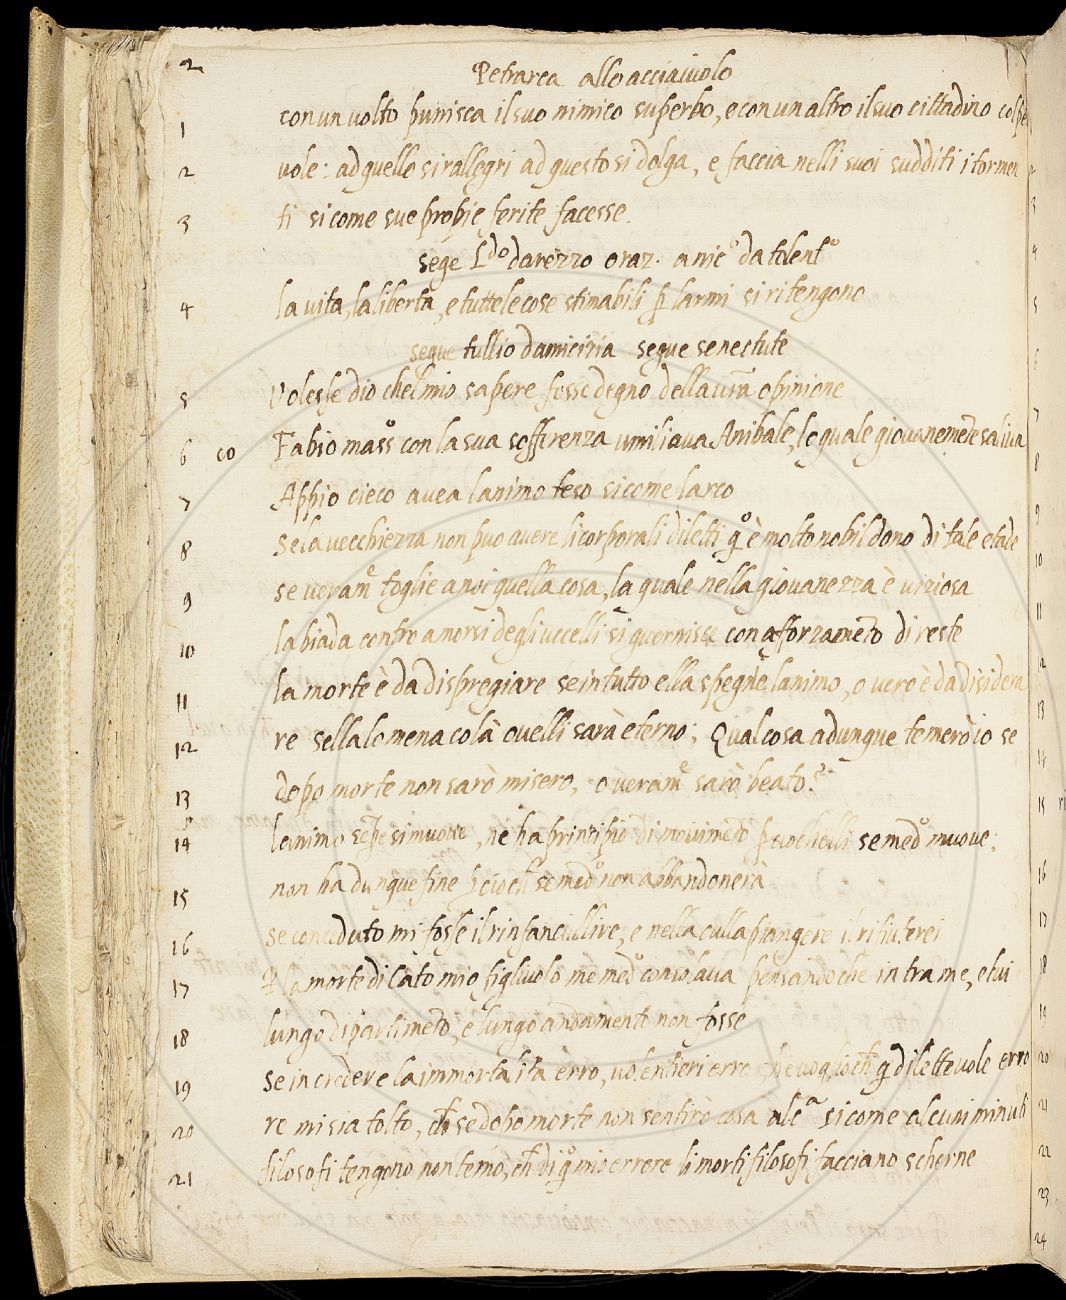 2
Petrarca allo acciaiuolo
1 con un volto punisca il suo nimico superbo, e con un altro il suo cittadino colpe
2 vole: ad quello si rallegri ad questo si dolga, e faccia nelli suoi sudditi i tormen
3 ti si come sue propie ferite facesse.
sege L.do darezzo oraz. a nic.o da tolent.o
4 la vita, la liberta, e tutte le cose stimabili p larmi si ritengono
segue tullio damicizia segue senectute
5 Volesse dio chel mio sapere fosse degno della vrã opinione
6 co Fabio mass.o con la sua sofferenza umiliava Anibale, lo quale giovanemẽte saliva
7 Appio cieco avea lanimo teso sicome larco
8 Se la vecchiezza non puo avere li corporali diletti q.o è molto nobil dono di tale etade
9 se veram.e toglie a noi quella cosa, la quale nella giovanezza è viziosa
10 la biada contro a morsi degli uccelli si guernisce con afforzamẽto di reste
11 la morte è da dispregiare se in tutto ella spegne lanimo, o vero è da disidera
12 re sella lo mena colà ovelli sarà eterno; Qual cosa adunque temerò io se
13 dopo morte non sarò misero, o veram.e sarò beato?
14 lanimo sẽpe si muove, ne ha principio di movimẽto p cio chelli se med.o muove;
15 non ha dunque fine p cio ch se med.o non abbandonerà
16 se conceduto mi fosse il rinfanciullire, e nella culla piangere il rifiuterei
17 P la morte di Cato mio figliuolo me med.o consolava pensando che in tra me, e lui
18 lungo dipartimẽto, e lungo andamento non fosse
19 se in credere la immortalità erro, volentieri erro, ne voglio ch q.o dilettevole erro
20 re mi sia tolto, ch se dopo morte non sentirò cosa alc.a sicome alcuni minuti
21 filosofi tengono non temo, ch di q.o mio errore li morti filosofi facciano scherne